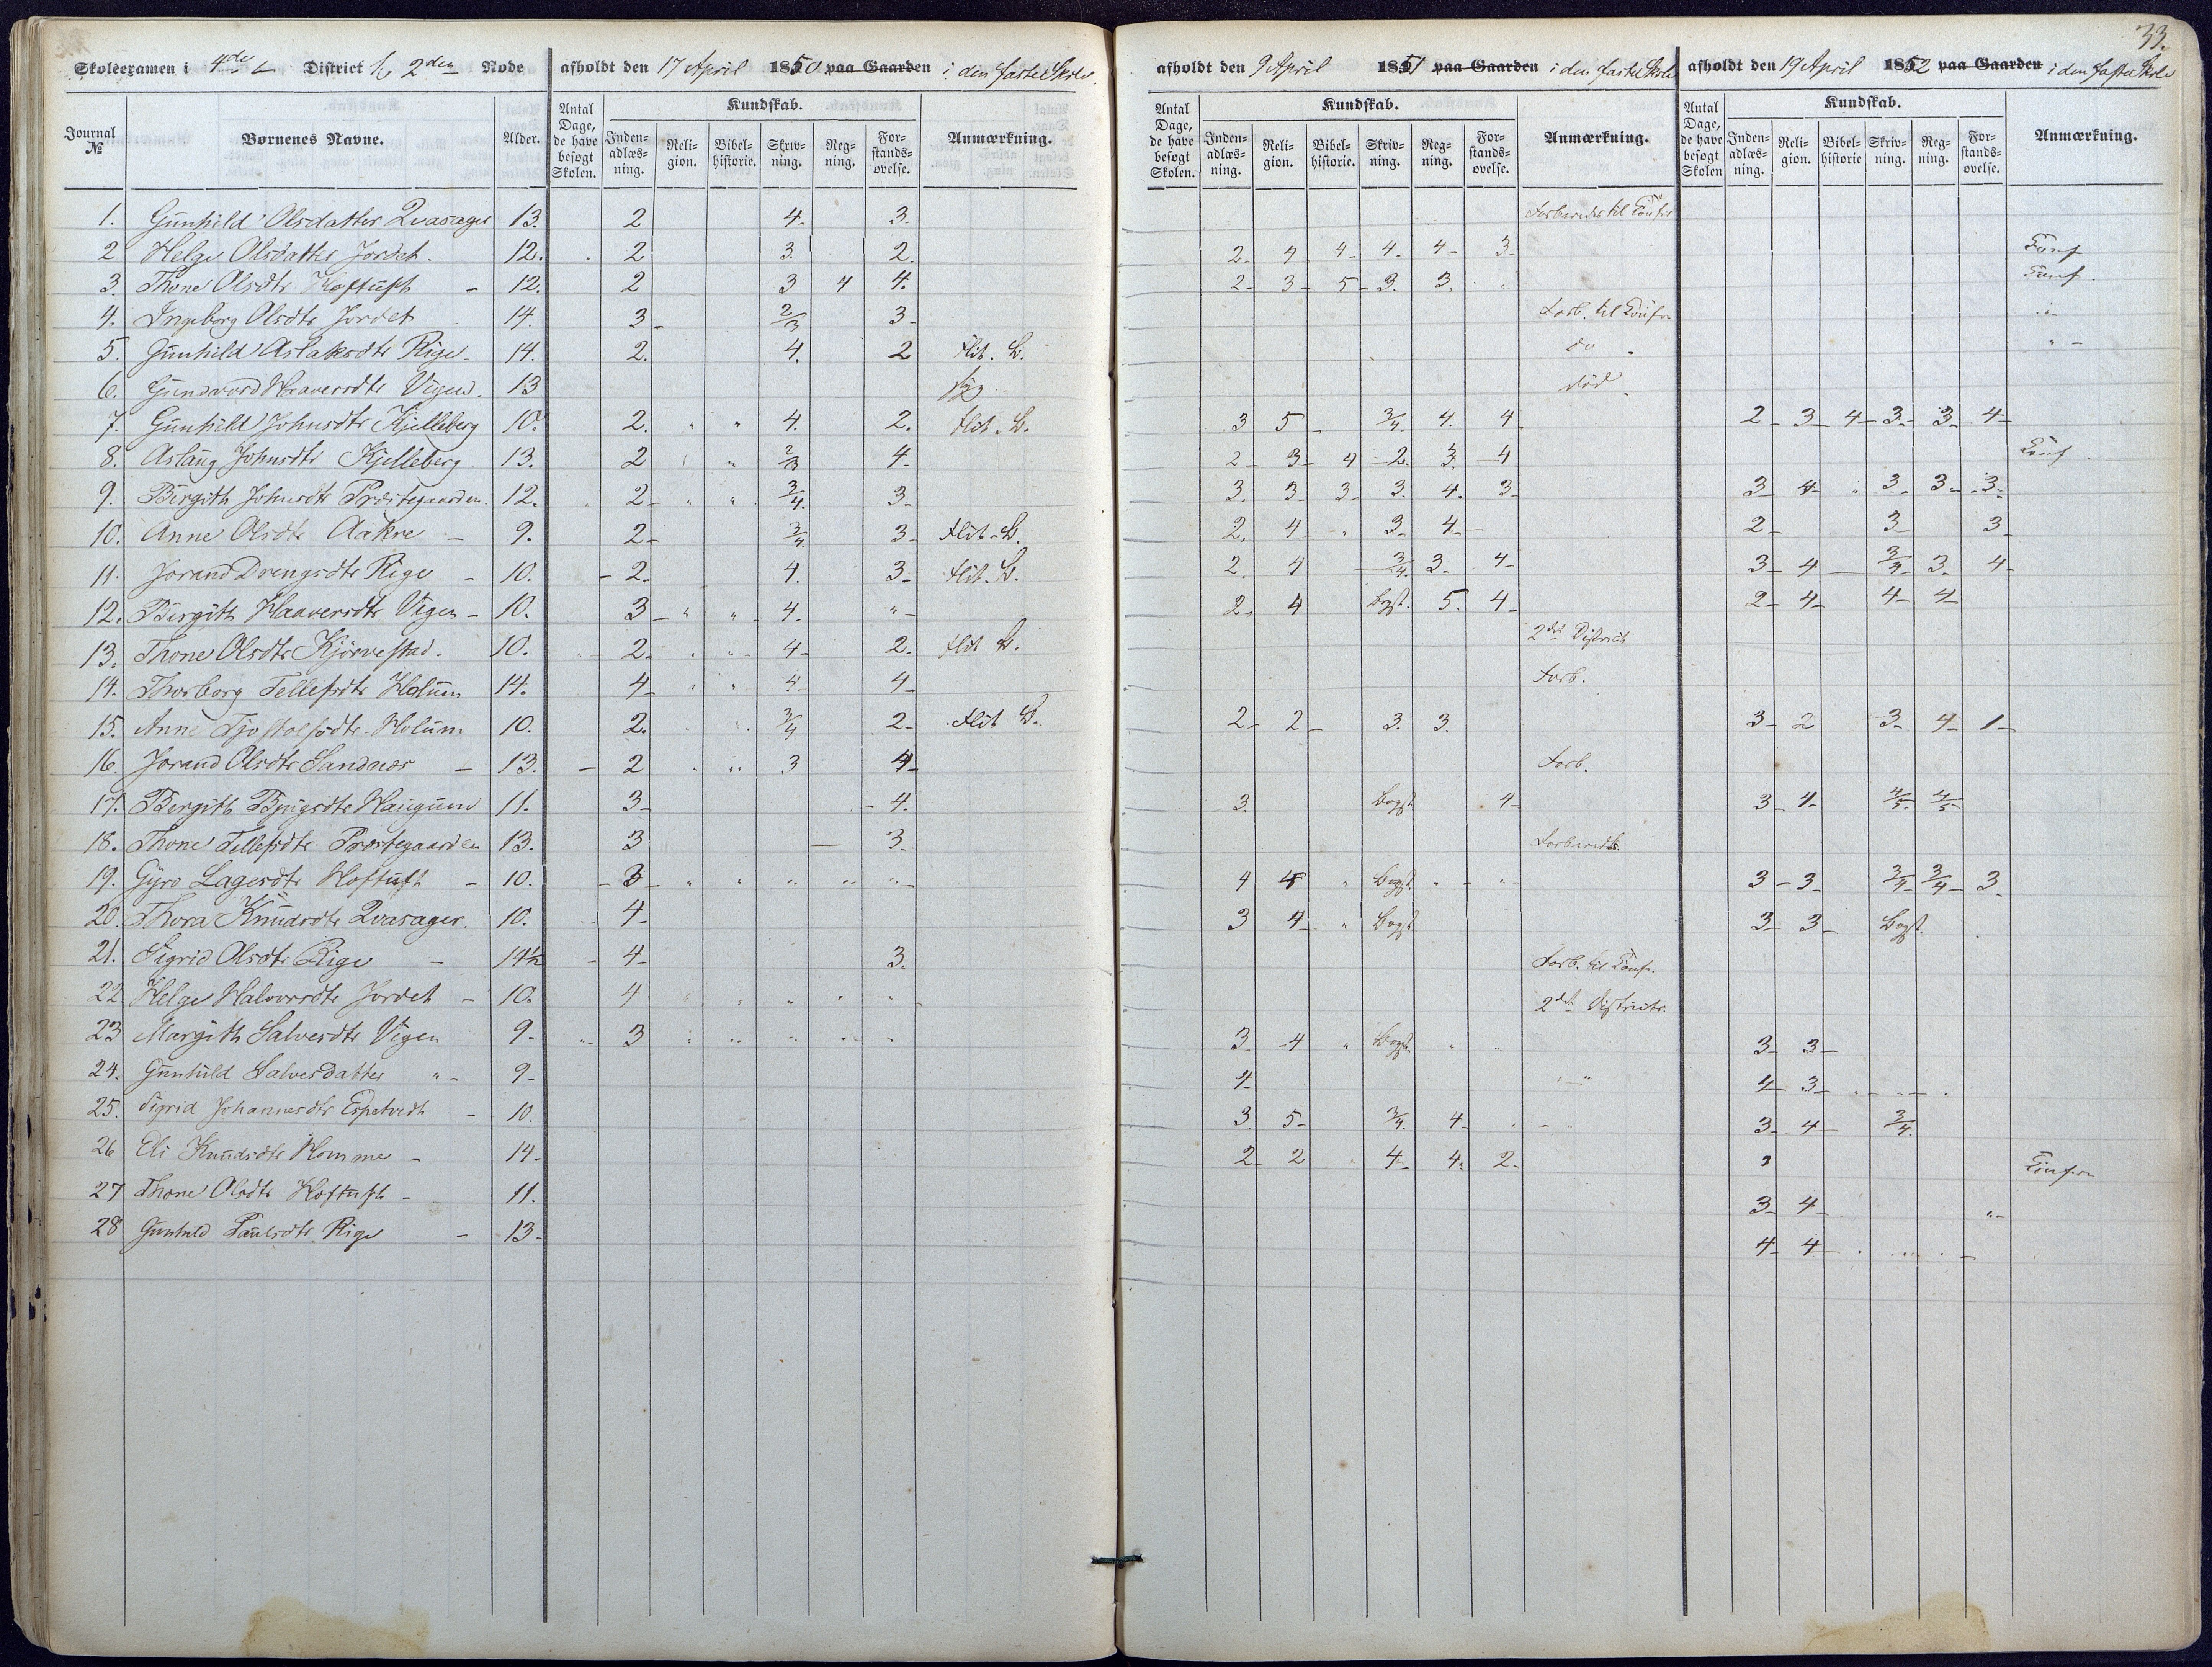 33.
Skoleexamen i 4de District 2den Rode afholdt den 17 April 1850 paa Gaarden i den faste Skole
afholdt den 9 April 1851 paa Gaarden i den faste Skole afholdt den 19 April 1852 paa Gaarden i den faste Skole
Journal № Børnenes Navne. Alder. Antal Dage, de have besøgt Skolen. Kundskab. Indenadlæsning. Religion. Bibelhistorie. Skrivning. Regning. Forstandsøvelse. Anmærkning.
Antal Dage, de have besøgt Skolen. Kundskab. Indenadlæsning. Religion. Bibelhistorie. Skrivning. Regning. Forstandsøvelse. Anmærkning.
Antal Dage, de have besøgt Skolen Kundskab. Indenadlæsning. Religion. Bibelhistorie Skrivning. Regning. Forstandsøvelse. Anmærkning.
1. Gunhild Olsdatter Qvasager 13. 2 4 3. Forberedes til Conf
2 Helge Olsdatter Jordet. 12. 2 3. 2. 2 4 4 4 4 3 Conf
3. Thone Olsdtr Hoftuft 12. 2 3 4 4. 2 3 5 3. 3. Conf.
4. Ingeborg Olsdtr Jordet 14. 3 2/3 3 Forb. til Conf
5. Gunhild Aslaksdtr Rige 14. 2. 4. 2 Flit. B. do
6. Haaversdtr Vigen. 13 syg død
7. Gunhild Johnsdtr Kjelleberg 10. 2. " " 4. 2. Flit. B. 3 5 3/4. 4. 4 2 3 4 3 3 4
8. Aslaug Johnsdtr Kjelleberg 13. 2 " 2/3 4. 2 3 4 2. 3. 4 Conf.
9. Birgith Johnsdtr Præstegaarden. 12. 2 " " 3/4. 3 3. 3 3 3. 4. 3 3 4 " 3 3 3
10. Anne Olsdtr Aakre 9. 2 3/4. 3 Flit. B. 2. 4 " 3 4 2 3 3
11. Jorand Drengsdtr Rige 10. 2 4. 3 Flit. B. 2. 4 3/4. 3. 4 3 4 3/4 3 4
12. Birgith Haaversdtr Vigen 10. 3 " " 4. " 2. 4 Begst. 5. 4 2 4 4 4
13. Thone Olsdtr Kjørvestad. 10. 2. " 4 2. Flit B. 2det District
14. Thorborg Tellefsdtr Holum 14. 4 " " 4 4 Forb.
15. Anne Tjostolfsdtr Holum 10. 2. 3/4 2 Flit B. 2 2 3. 3. 3 2 3 4 1
16. Jorand Olsdtr Sandnæs 13. 2 " " 3 4 Forb.
17. Bergith Bjugsdtr Haugum 11. 3 4. 3. Begst 4 3 4 4/5 4/5
18. Thone Tellefsdtr Præstegaarden 13. 3 3. Forberedes.
19. Gyro Lagesdtr Hoftuft 10. 3 " " " " " 4 4 " Begst. " " 3 3 3/4 3/4 3
20. Thora Knudsdtr Qvasager. 10. 4 3 4 " Begst 3 3 Begst.
21. Sigrid Olsdtr Rige 14½ 4 3. Forb. til Conf.
22 Helge Halvorsdtr Jordet 10. 4 " " " " " 2det District.
23 Margith Salvesdtr Vigen 9 3 " " " " " 3 4 " Begst. " " 3 3
24. Gunhild Salvesdatter " 9 4 4 3
25. Sigrid Johannesdtr Espetvedt 10. 3. 5 3/4. 4 3 4 3/4.
26 Eli Knudsdtr Homme 14 2 2 4 4. 2 3 Conf
27 Thone Olsdtr Hoftuft 11. 3 4 "
28 Gunhild Paulsdtr Rige 13 4 4